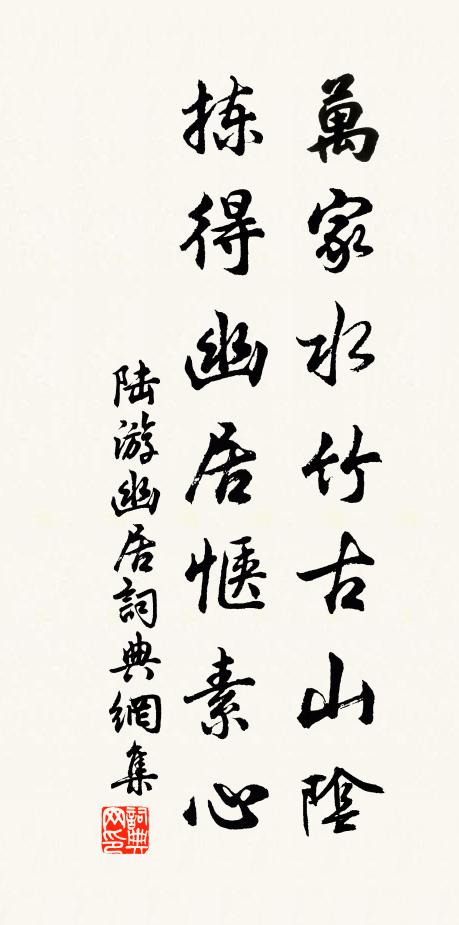 萬家水竹古山陰
拣得幽居愜素心
陆游幽居詞典網集
詞典网印